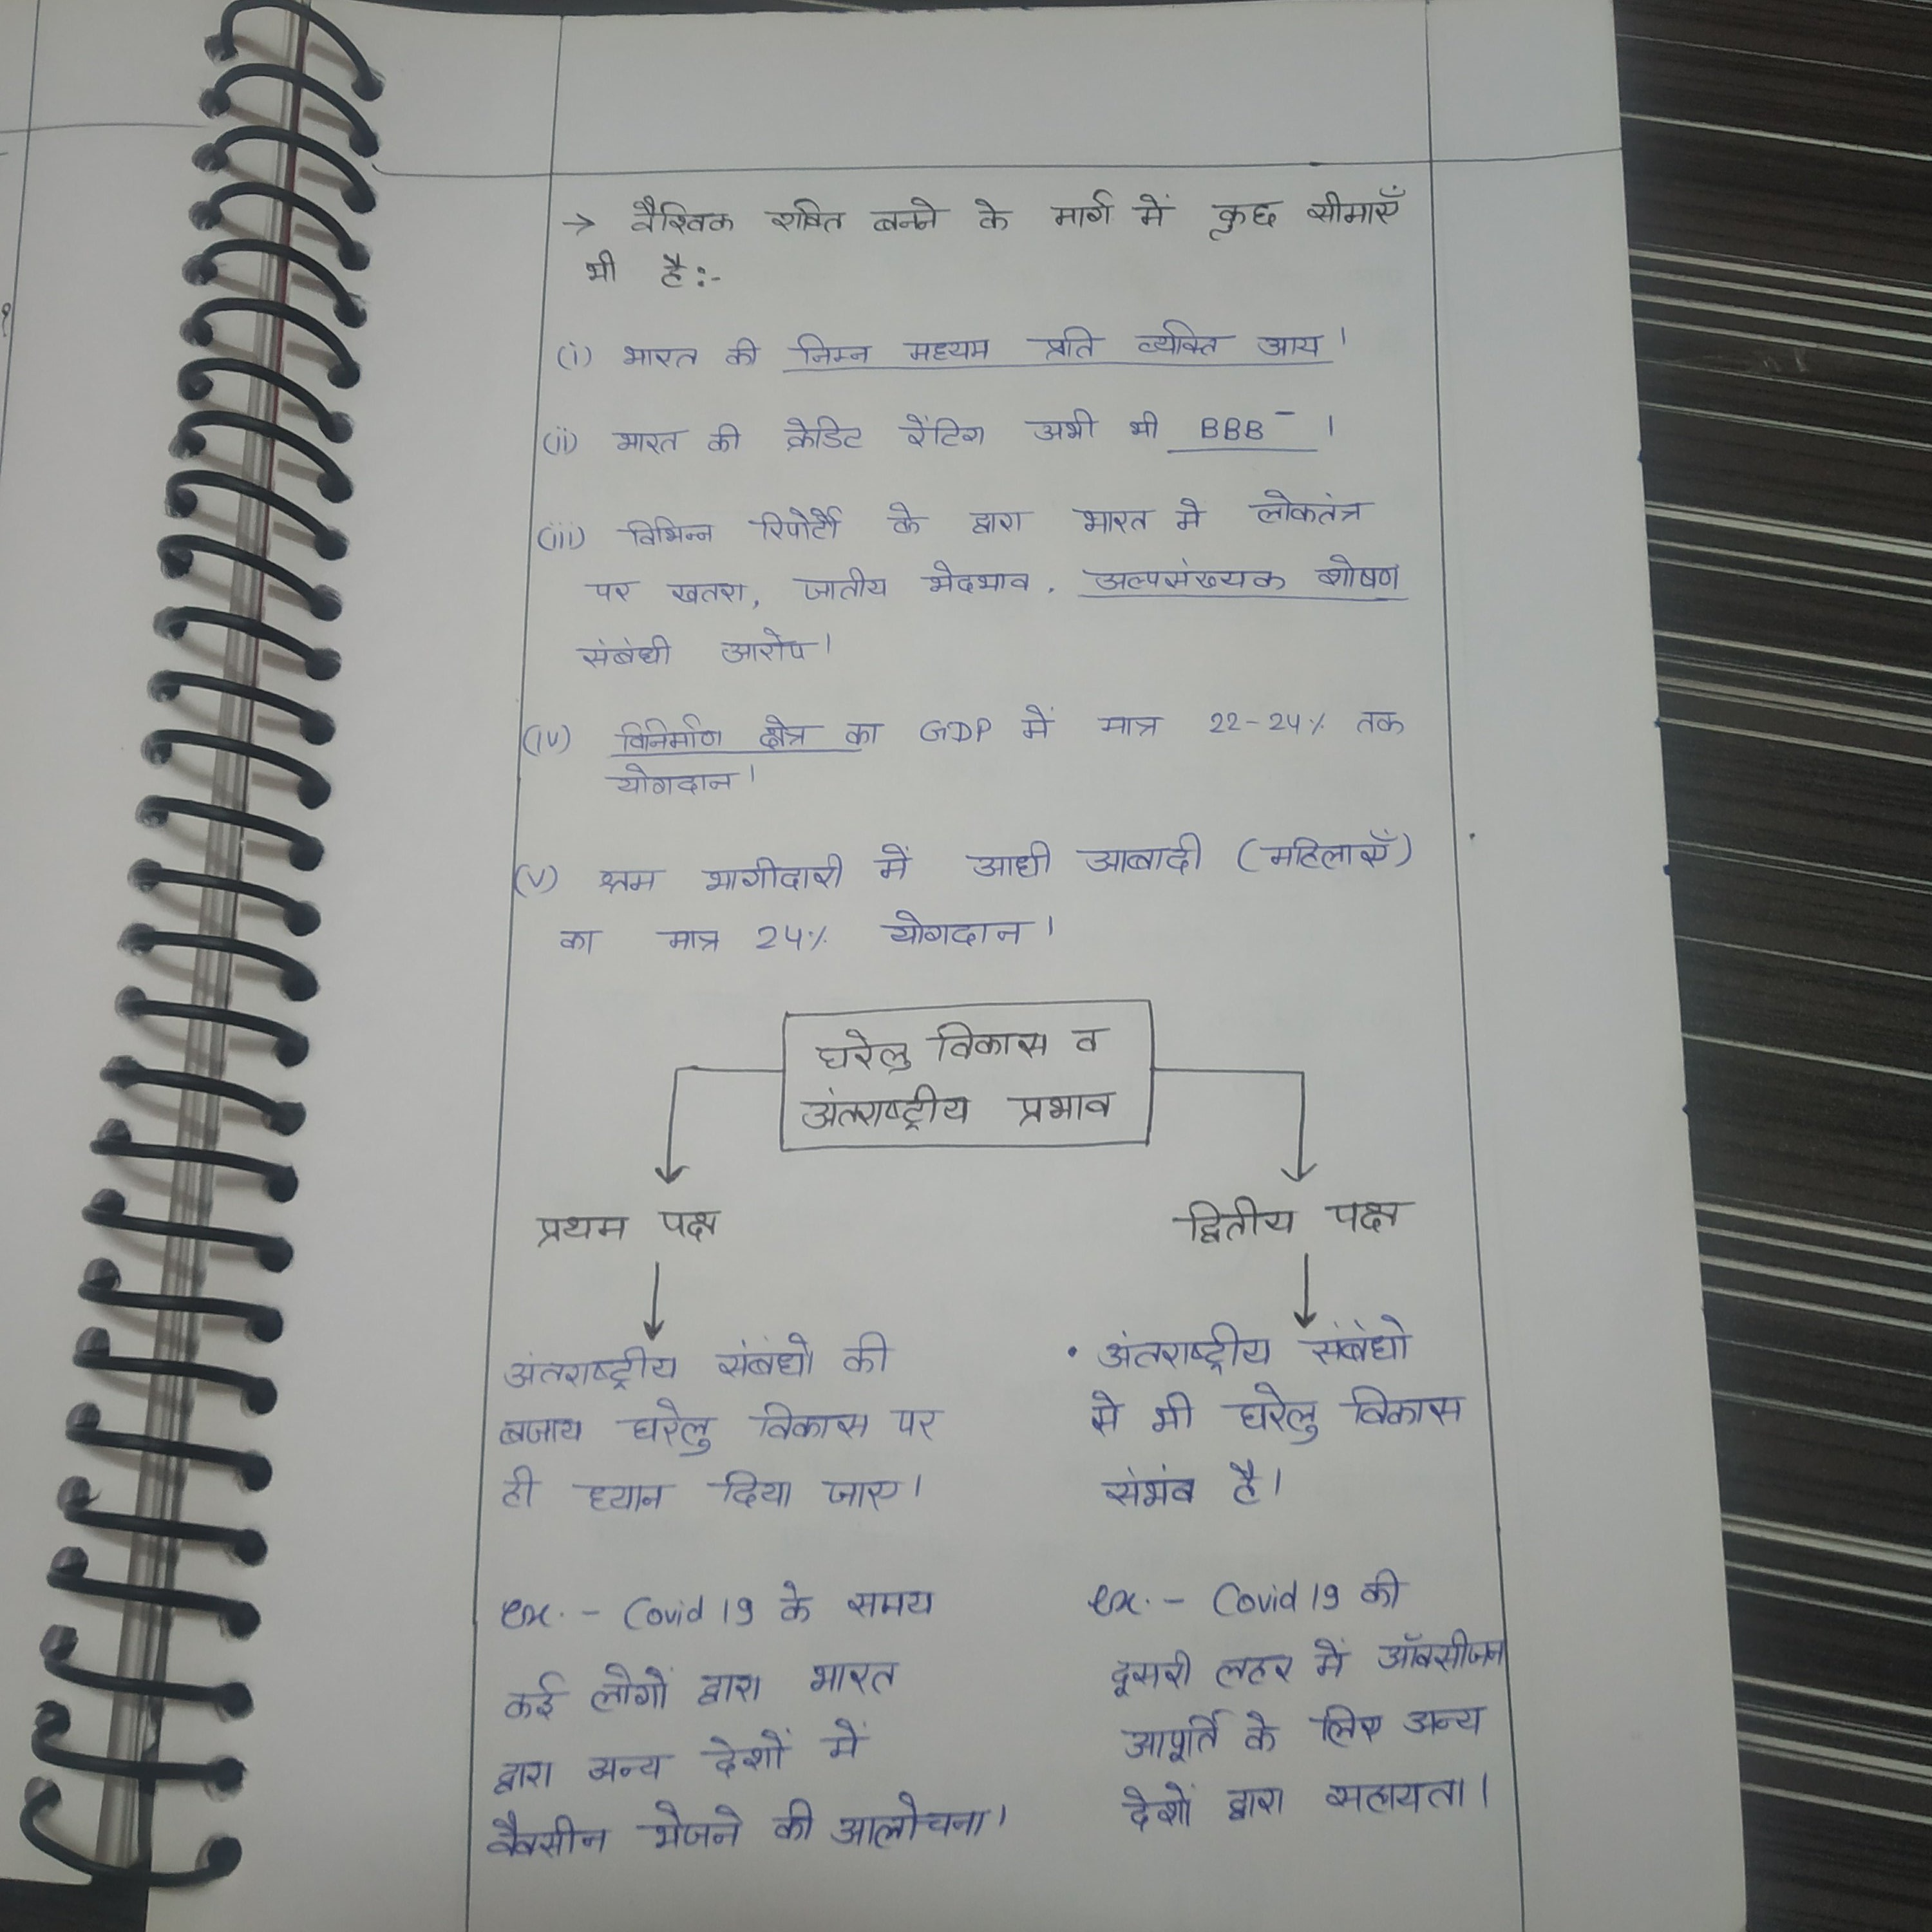 → वैश्विक शक्ति बनने के मार्ग में कुछ सीमाएँ
भी है:-
(i) भारत की निम्न मध्यम प्रति व्यक्ति आय।
(ii) भारत की क्रेडिट रैंटिग अभी भी BBB⁻ ।
(iii) विभिन्न रिपोर्टो के द्वारा भारत मे लोकतंत्र
पर खतरा, जातीय भेदभाव, अल्पसंख्यक शोषण
संबंधी आरोप।
(iv) विनिर्माण क्षेत्र का GDP में मात्र 22-24% तक
योगदान।
(v) श्रम भागीदारी में आधी आबादी (महिलाएँ)
का मात्र 24% योगदान।
घरेलु विकास व
अंतराष्ट्रीय प्रभाव
प्रथम पक्ष
द्वितीय पक्ष
अंतराष्ट्रीय संबंधो की
बजाय घरेलु विकास पर
ही ध्यान दिया जाए।
ex. - Covid 19 के समय
कई लोगों द्वारा भारत
द्वारा अन्य देशों में
वैक्सीन भेजने की आलोचना।
• अंतराष्ट्रीय संबंधो
से भी घरेलु विकास
संभंव है।
ex. - Covid 19 की
दूसरी लहर में ऑक्सीजन
आपूर्ति के लिए अन्य
देशों द्वारा सहायता।